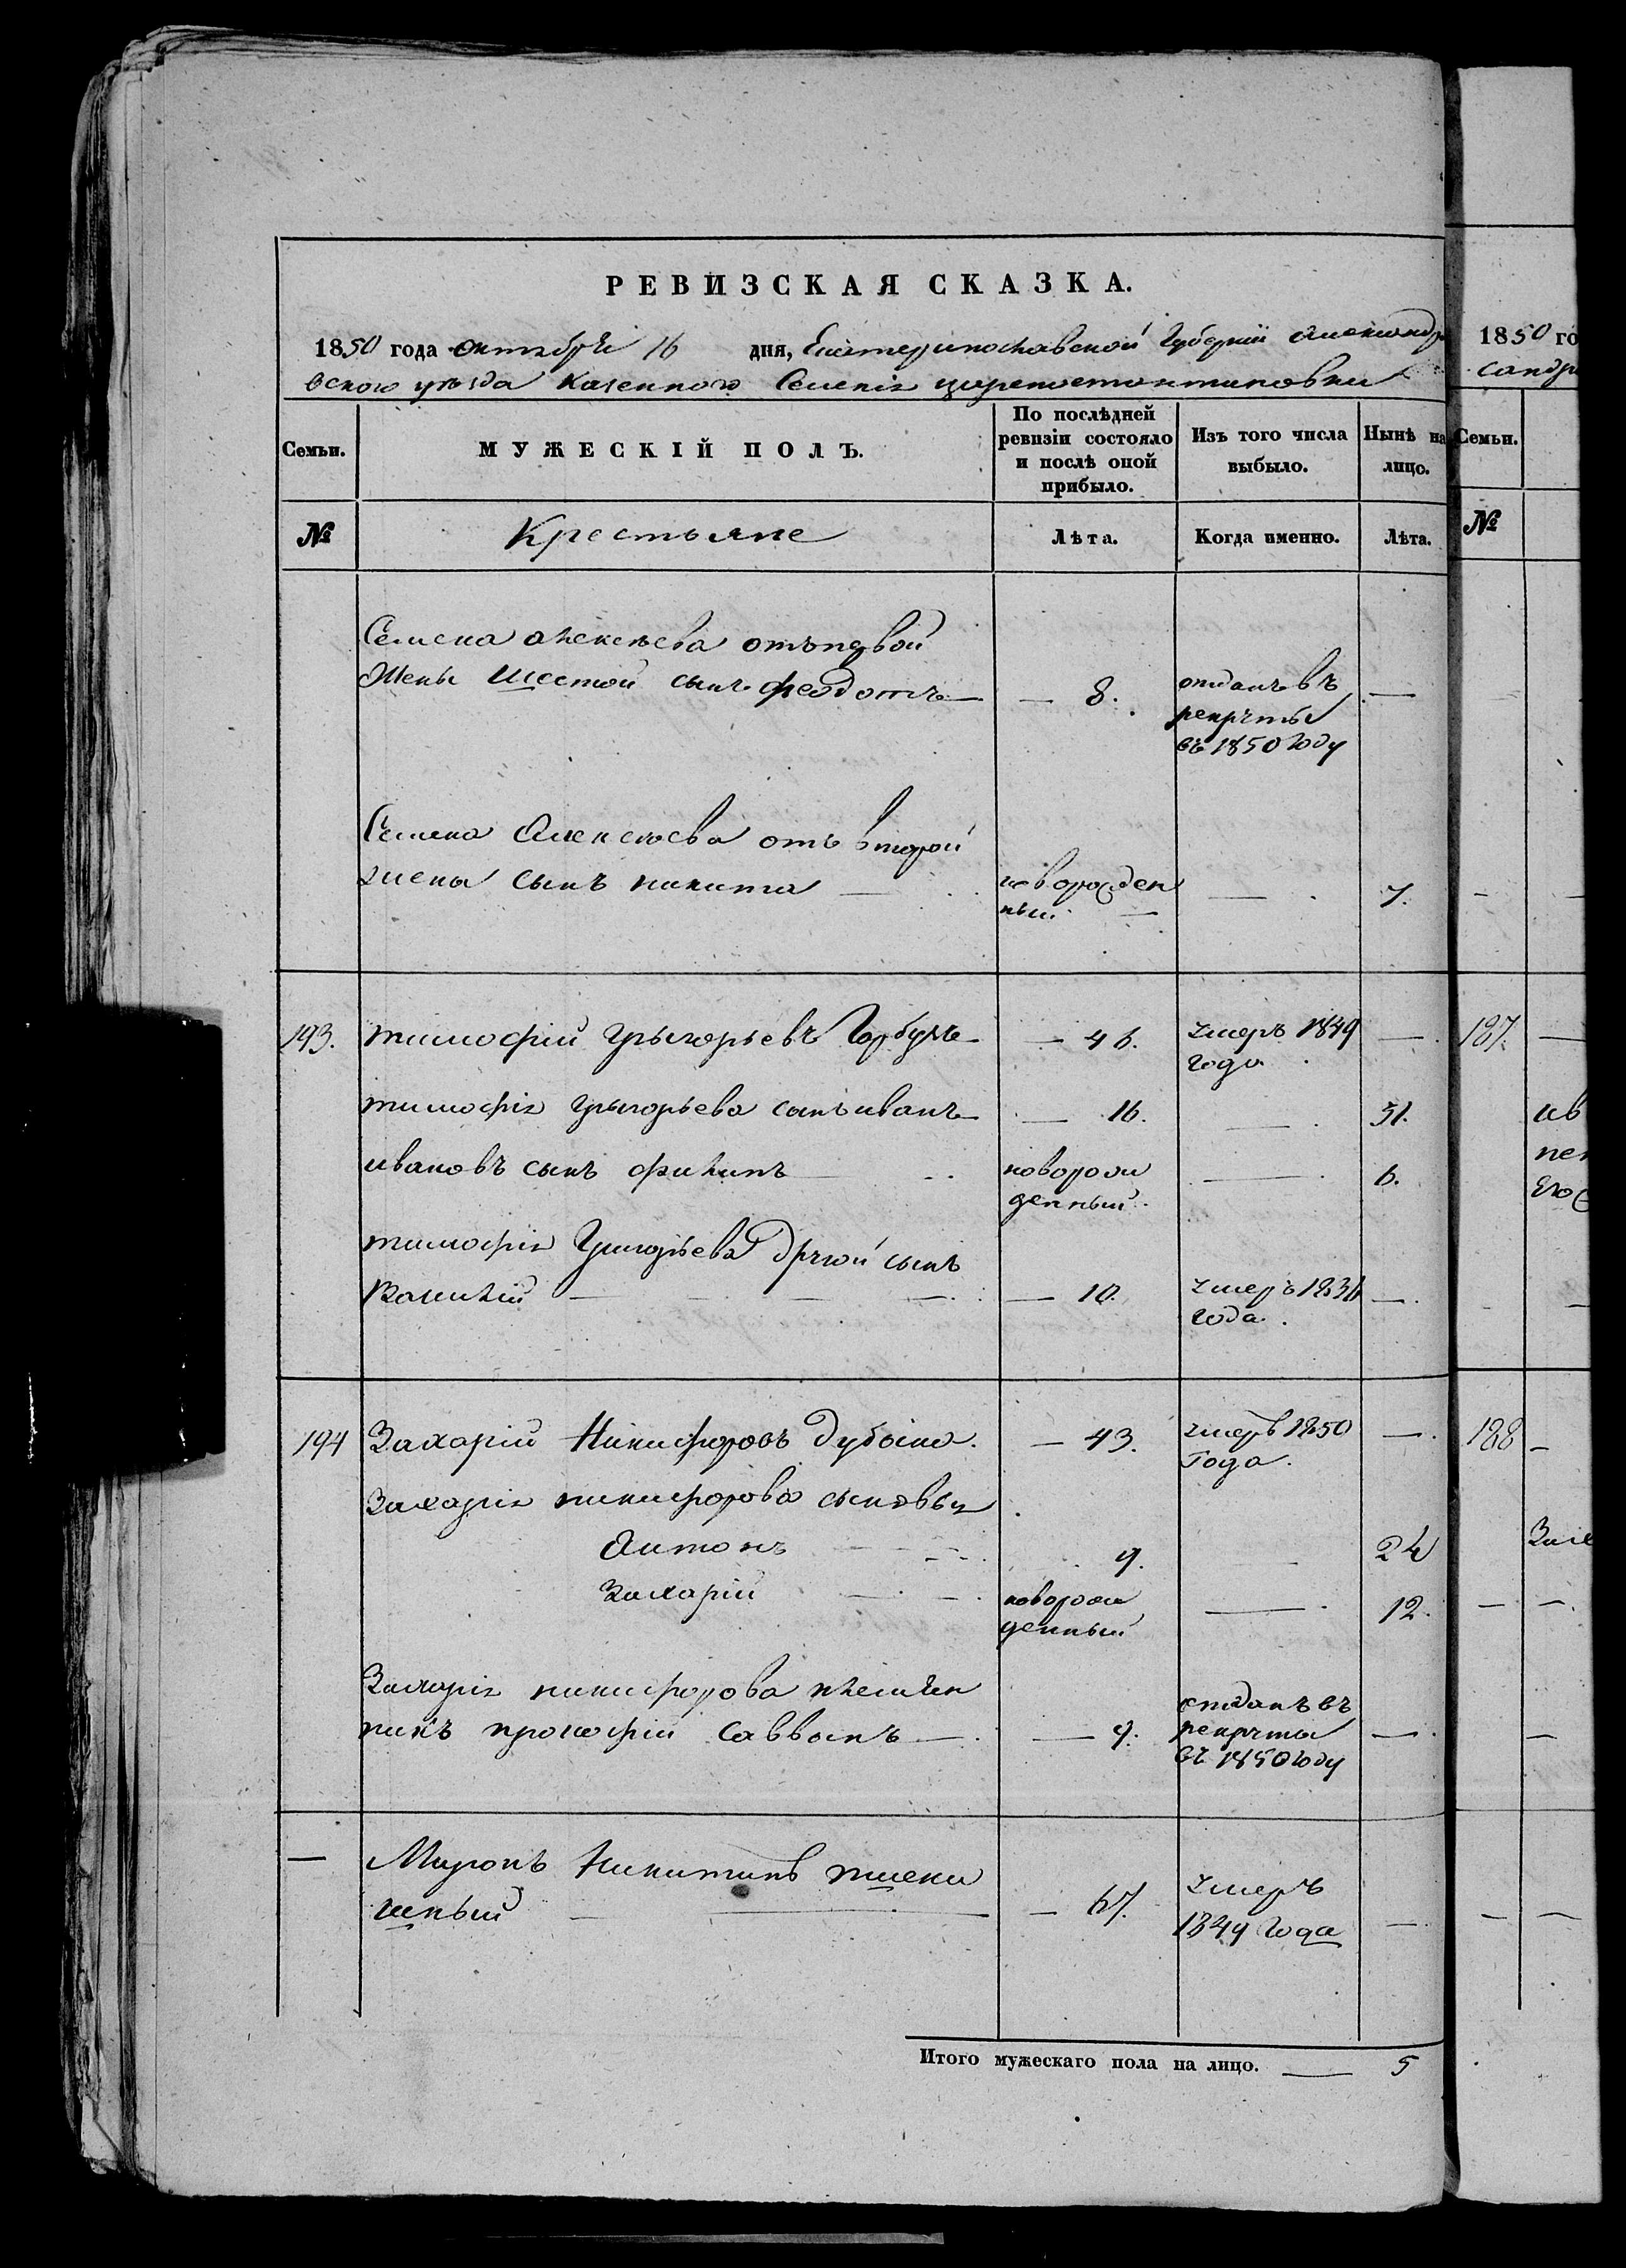 РЕВИЗСКАЯ СКАЗКА.
1850 года октября 16 дня, Екатеринославской Губерніи Александр
вского уѣзда казенного Селенія цареконстантиновки
Семьи.
МУЖЕСКІЙ ПОЛЪ.
По послѣдней
ревизіи состояло
и послѣ оной
прибыло.
Изъ того числа
выбыло.
Нынѣ на
лицо.
№
Крестьяне
Лѣта.
Когда именно.
Лѣта.
Семена алексѣева отъ первой
жены шестой сынъ феодотъ — — 8. отданъ въ —
рекруты
въ 1850 году
Семена Алексѣева отъ второй
жены сынъ никита — новорожден — 7.
ный —
193. тимофій Грыгорьевъ Горбунъ — 46. умеръ 1849 —
года
тимофія Грыгорьева сынъ иванъ — 16. — 31.
ивановъ сынъ филипъ — новорож — 6.
денный
тимофія Григорьева другой сынъ
Василій — — 10. умеръ 1836 —
года.
194 Захарій Никифоровъ дубина. — 43. умеръ 1850 —
Года.
Захарія никифорова сыновья
Антонъ 9. — 24
Захарій новорож — 12.
денный
Захарія никифорова племян
никъ прокофій саввинъ — — 9. отданъ въ —
рекруты
въ 1850 году
— Миронъ Никитинъ
шный — — 67. умеръ —
1849 года
Итого мужескаго пола на лицо. — 5
1850 го
сандр
Семьи.
№
187. —
ив
Его
188 —
Зах